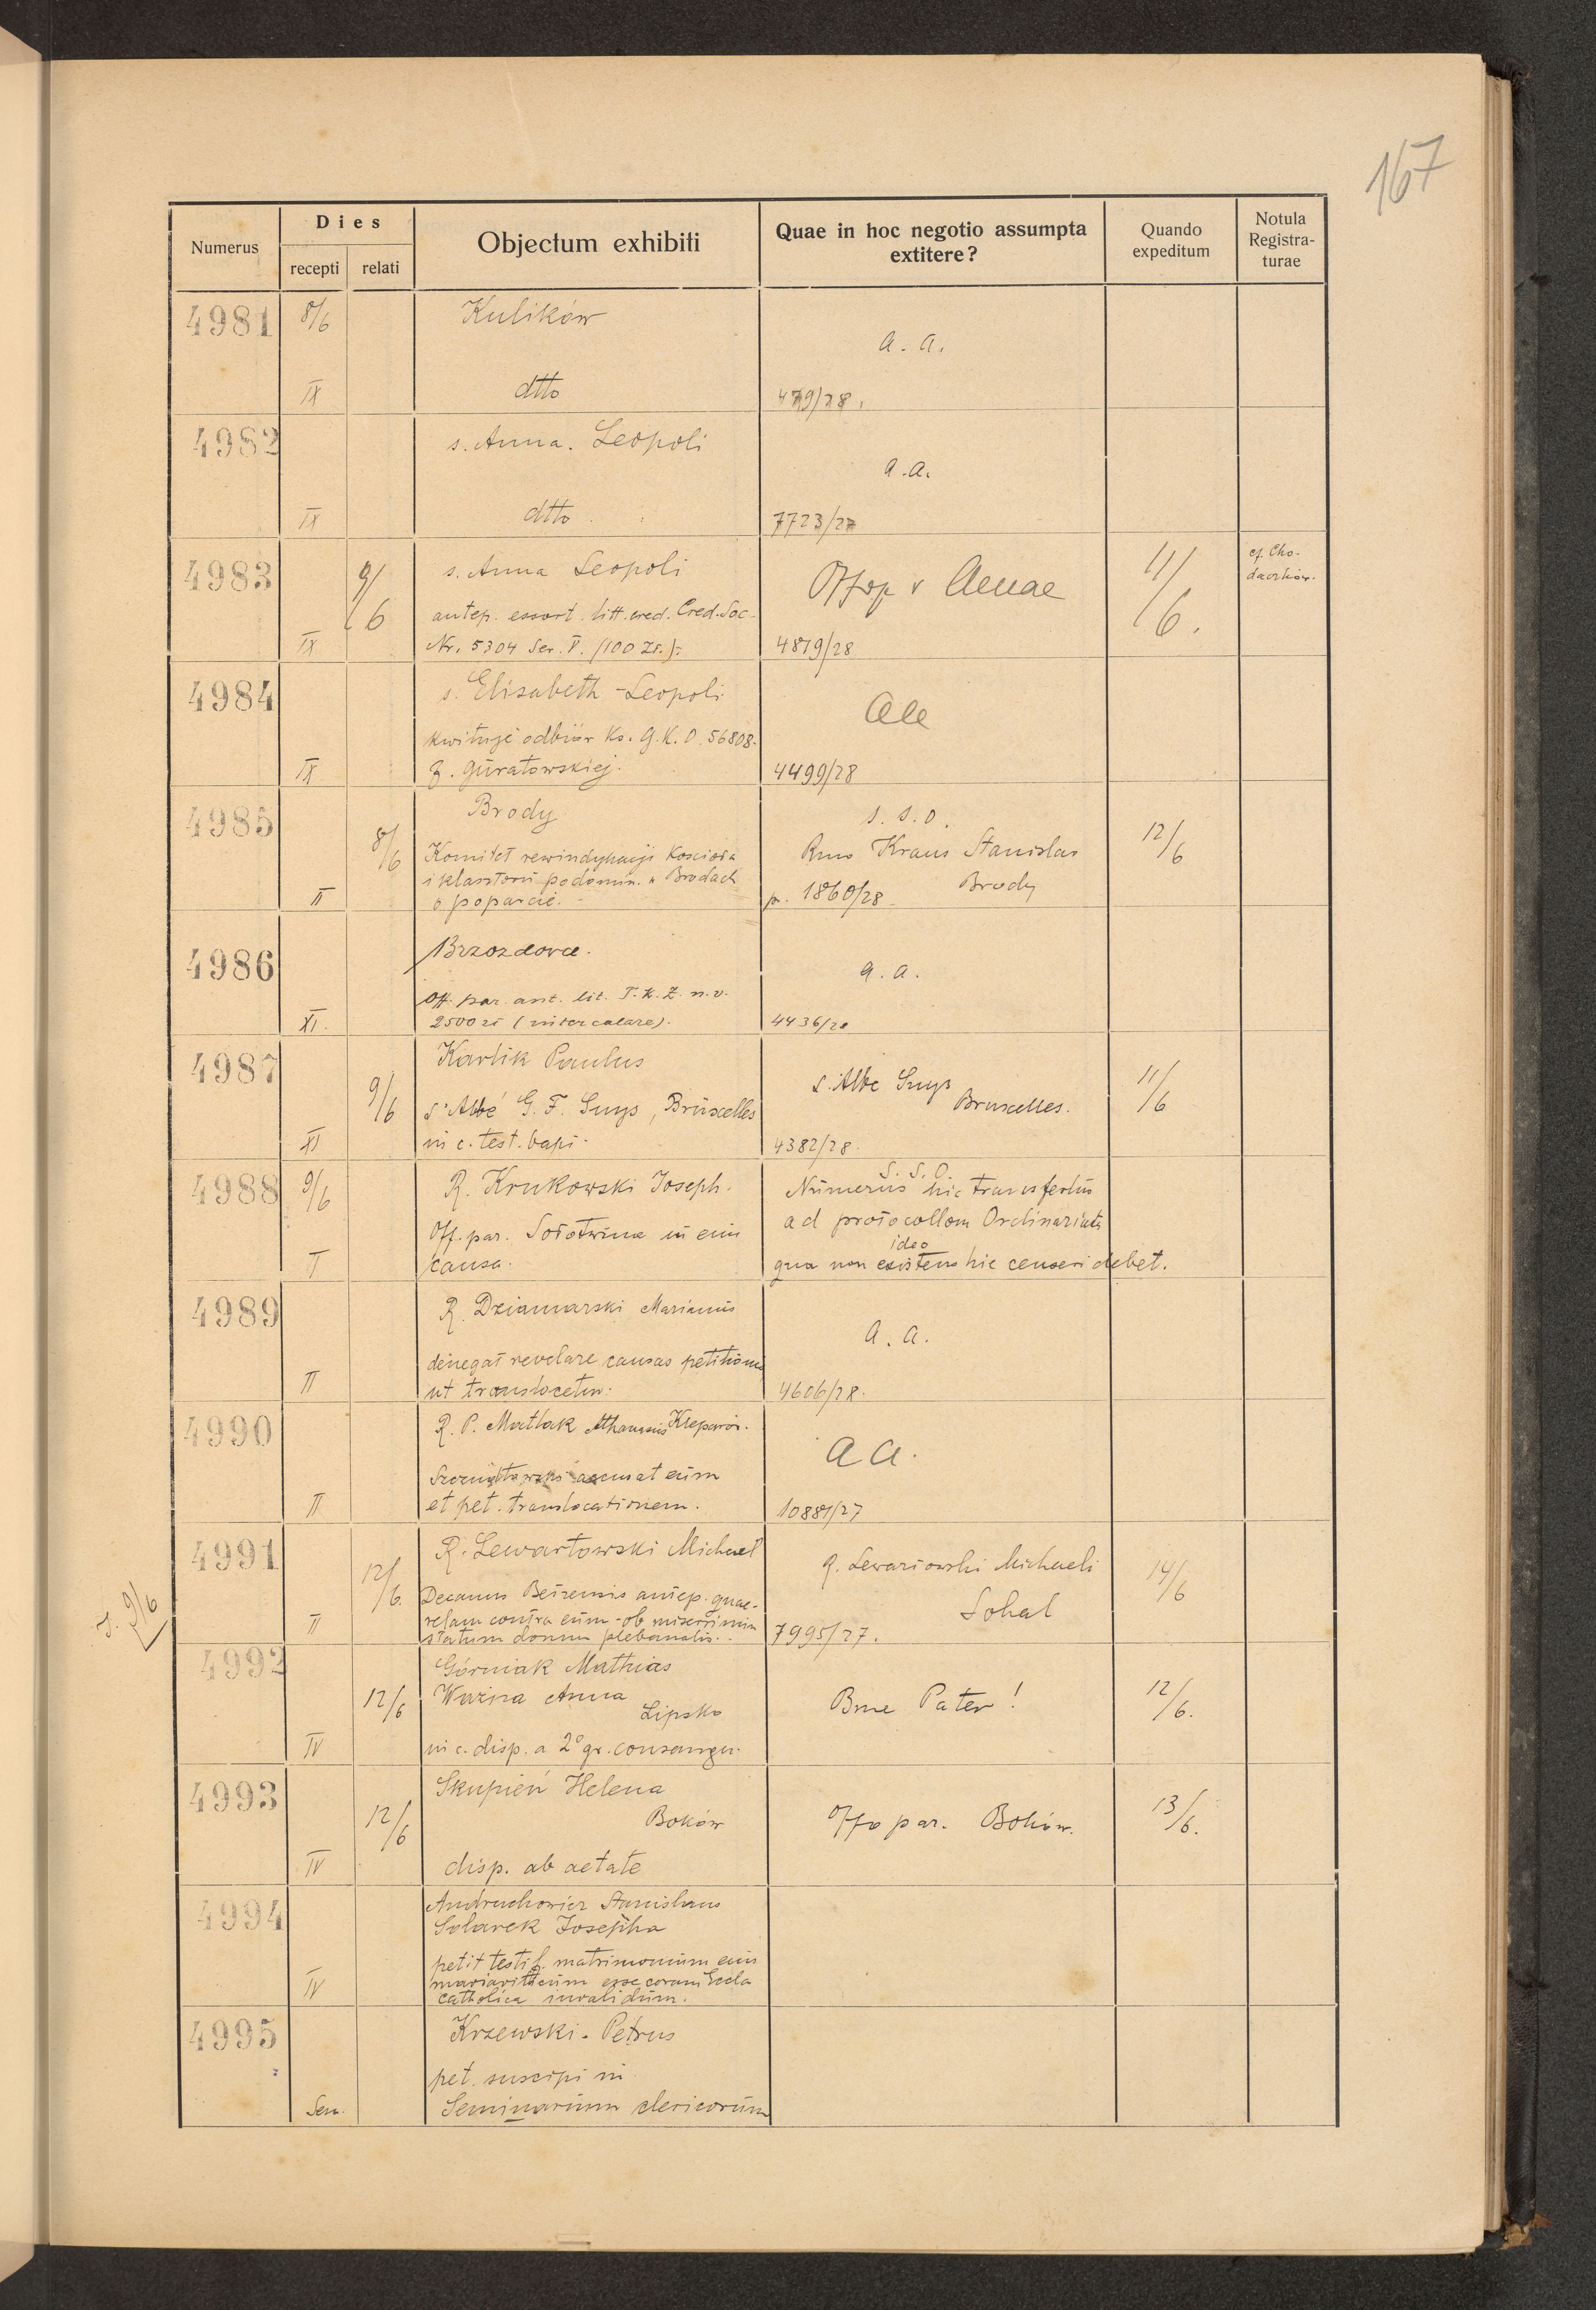 167
Numerus
Dies
recepti
relati
Objectum exhibiti
Quae in hoc negotio assumpta
extitere?
Quando
expeditum
Notula
Registra-
turae
4981
8/6
IX
Kulików
dtto
a. a.
4982
IX
s. Anna. Leopoli
dtto
a. a.
7723/27
4983
IX
9/6
s. Anna Leopoli
antep. essort. litt. cred. Cred. Soc.
Nr. 5304 Ser. V. (100 Zł.):
4819/28
11/6.
cf. Cho-
daczków.
4984
IX
s. Elisabeth - Leopoli
kwituje odbiór Ks. G. K. O. 56808.
4499/28
4985
II
8/6
Brody
Komitet rewindykacji Kościoła
i klasztoru podomin. w Brodach
o poparcie.
s. s. o.
Rmo Kraus Stanislao
Brody
p. 1860/28
12/6
4986
XI.
Brzozdowce.
Off. par. ant. lit. T. K. Z. n. v.
2500 zł (intercalare).
a. a.
4436/28
4987
XI
9/6
Karlik Paulus
s. Abbé G. F. Suys, Bruxelles
in c. test. bapt.
s. Abbe Suys
Bruxelles.
4382/28
11/6
4988
9/6
I
R. Krukowski Joseph.
Off. par. Sołotwina in eius
causa.
S. S. O.
Numerus hic transfertus
ad protocollom Ordinariats
ideo
qua non existens hic censeri debet.
4989
II
R. Dziamarski Marianus
denegat revelare causas petitionis
ut translocetur.
a. a.
4606/28.
4990
II
R. P. Matlak Athanasius Kleparów.
accusat eum
et pet. translocationem.
a a.
10881/27
4991
II
12/6.
R. Lewartowski Michael
Decanus Bełzensis antep. quae-
relam contra eum - ob miserrimum
statum domus plebanalis.
R. Lewartowski Michaeli
Sokal
7995/27.
14/6
s. 9/6
4992
IV
12/6
Górniak Mathias
Ważna Anna
Lipsko
in c. disp. a 2º gr. consangu.
Bme Pater!
12/6.
4993
IV
12/6
Skupień Helena
Boków
disp. ab aetate
Offo par. Boków.
13/6.
4994
IV
Andruchowicz Stanislaus
Solarek Josepha
petit testif. matrimonium eius
mariaviticum esse coram Eccla
catholica invalidum.
4995
Sem.
Krzewski - Petrus
pet. suscipi in
Seminarium clericorum